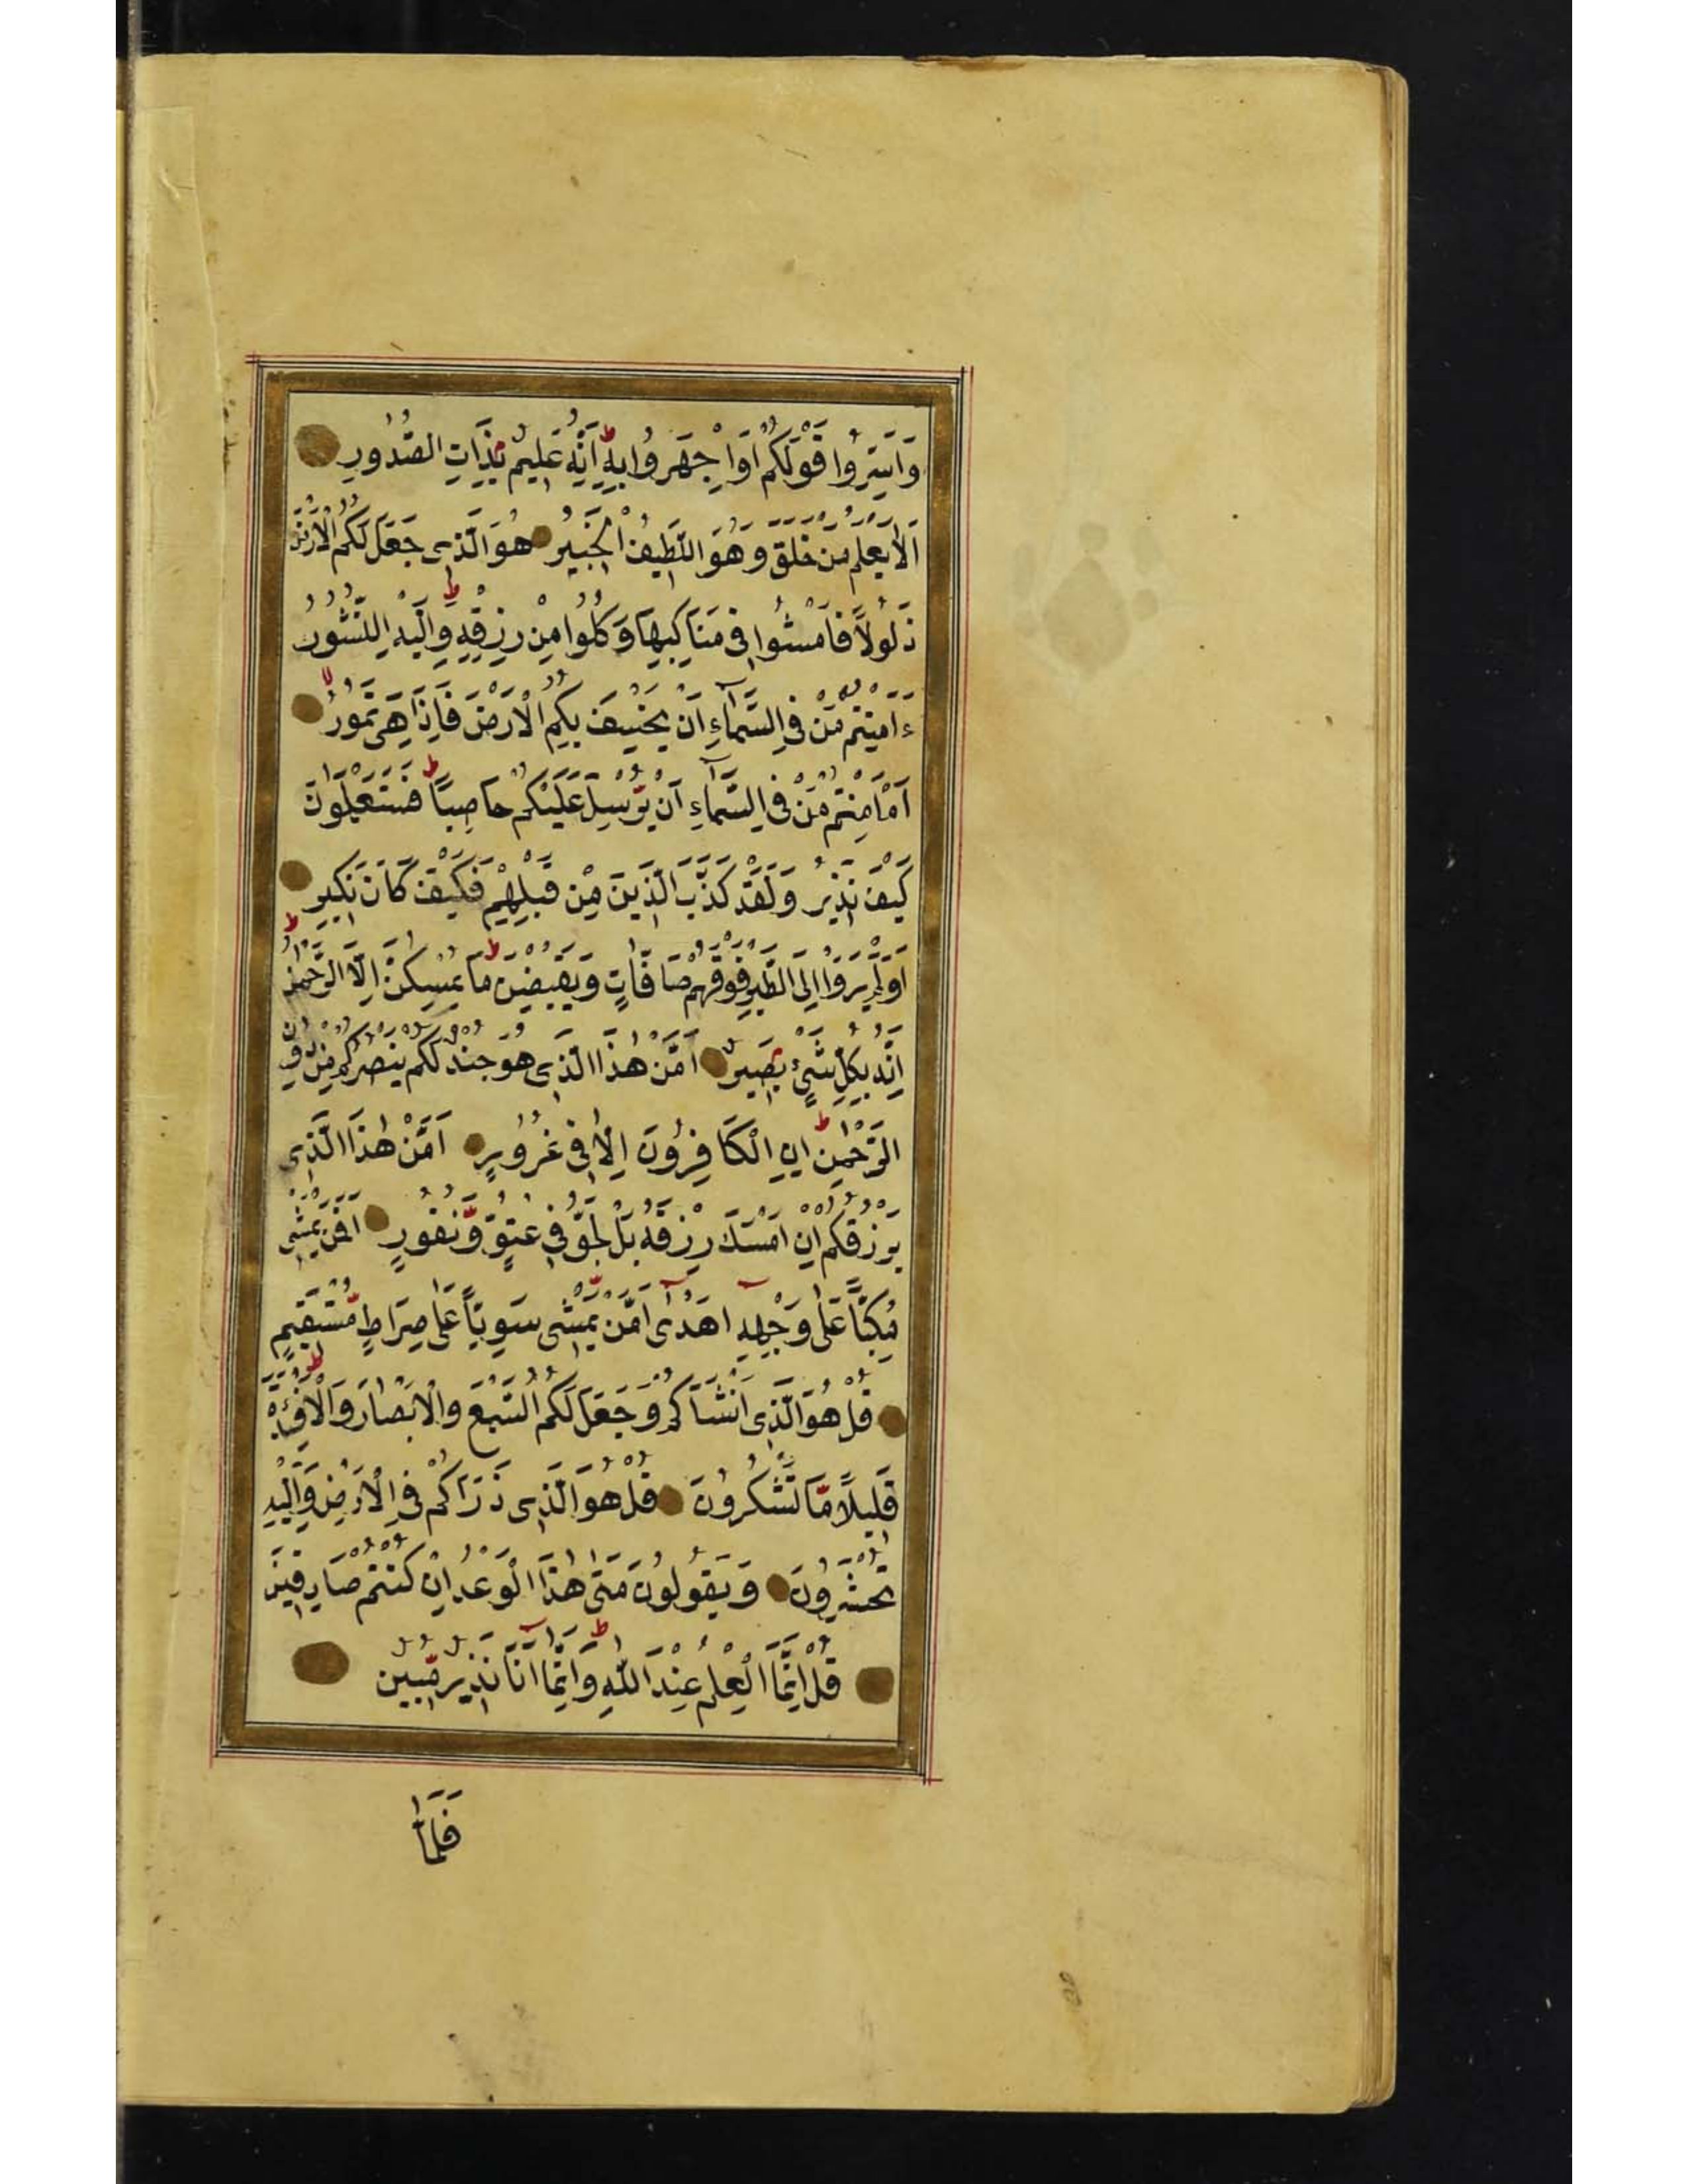 وَاَسِرُّوا قَوْلَكُمْ اَوِاجْهَرُوا بِهٖ اِنَّهُ عَلِيمٌ بِذَاتِ الصُّدُورِ
اَلَا يَعْلَمُ مَنْ خَلَقَ وَهُوَ اللَّطِيفُ الْخَبِيرُ هُوَ الَّذِى جَعَلَ لَكُمُ الْاَرْضَ
ذَلُولًا فَامْشُوا فِى مَنَاكِبِهَا وَكُلُوا مِنْ رِزْقِهٖ وَاِلَيْهِ النُّشُورُ
ءَاَمِنْتُمْ مَنْ فِى السَّمَآءِ اَنْ يَخْسِفَ بِكُمُ الْاَرْضَ فَاِذَا هِىَ تَمُورُ
اَمْ اَمِنْتُمْ مَنْ فِى السَّمَآءِ اَنْ يُرْسِلَ عَلَيْكُمْ حَاصِبًا فَسَتَعْلَمُونَ
كَيْفَ نَذِيرِ وَلَقَدْ كَذَّبَ الَّذِينَ مِنْ قَبْلِهِمْ فَكَيْفَ كَانَ نَكِيرِ
اَوَلَمْ يَرَوْا اِلَى الطَّيْرِ فَوْقَهُمْ صَافَّاتٍ وَيَقْبِضْنَ مَا يُمْسِكُهُنَّ اِلَّا الرَّحْمٰنُ
اِنَّهُ بِكُلِّ شَىْءٍ بَصِيرٌ اَمَّنْ هٰذَا الَّذِى هُوَ جُنْدٌ لَكُمْ يَنْصُرُكُمْ مِنْ دُونِ
الرَّحْمٰنِ اِنِ الْكَافِرُونَ اِلَّا فِى غُرُورٍ اَمَّنْ هٰذَا الَّذِى
يَرْزُقُكُمْ اِنْ اَمْسَكَ رِزْقَهُ بَلْ لَجُّوا فِى عُتُوٍّ وَنُفُورٍ اَفَمَنْ يَمْشِى
مُكِبًّا عَلٰى وَجْهِهٖٓ اَهْدٰىٓ اَمَّنْ يَمْشِى سَوِيًّا عَلٰى صِرَاطٍ مُسْتَقِيمٍ
قُلْ هُوَ الَّذِى اَنْشَاَكُمْ وَجَعَلَ لَكُمُ السَّمْعَ وَالْاَبْصَارَ وَالْاَفْئِدَةَ
قَلِيلًا مَا تَشْكُرُونَ قُلْ هُوَ الَّذِى ذَرَاَكُمْ فِى الْاَرْضِ وَاِلَيْهِ
تُحْشَرُونَ وَيَقُولُونَ مَتٰى هٰذَا الْوَعْدُ اِنْ كُنْتُمْ صَادِقِينَ
قُلْ اِنَّمَا الْعِلْمُ عِنْدَ اللّٰهِ وَاِنَّمَآ اَنَا نَذِيرٌ مُبِينٌ
فَلَمَّا